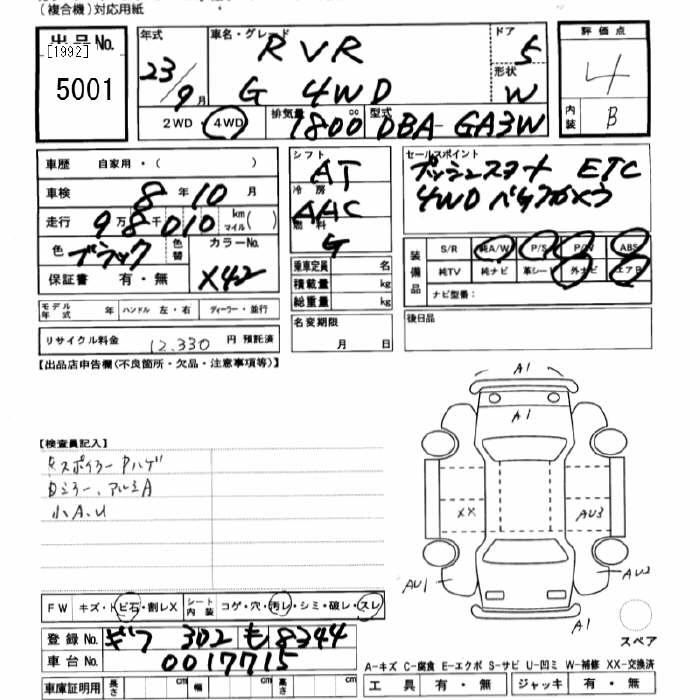 (複合機)対応用紙
出品No.
[1992]
5001
年式
23/9月
車名・グレード
RVR
G 4WD
ドア
5
形状
W
評価点
4
内装
B
2WD・4WD
排気量
1800cc
型式
DBA-GA3W
車歴 自家用・( )
車検 8年10月
走行 9万8千010 km マイル( )
色 ブラック
色替
カラーNo.
X42
保証書 有・無
シフト
AT
冷房
AAC
燃料
G
乗車定員 名
積載量 kg
総重量 kg
セールスポイント
プッシュスタート ETC
4WD バックカメラ
装備品
S/R 純A/W P/S P/W ABS
純TV 純ナビ 革シート 外ナビ エアB
ナビ型番:
モデル年式 年 ハンドル 左・右 ディーラー・並行
名変期限
月 日
後日品
リサイクル料金 12,330 円 預託済
【出品店申告欄(不良箇所・欠品・注意事項等)】
【検査員記入】
Rスポイラー Pハゲ
ミラー、アルミA
小A、U
A1
A1
XX
AU3
AU1
AU2
A1
スペア
FW キズ・トビ石・割レX
シート内装 コゲ・穴・汚レ・シミ・破レ・スレ
登録No. ギフ 302 も 8344
車台No. 0017715
A-キズ C-腐食 E-エクボ S-サビ U-凹ミ W-補修 XX-交換済
車庫証明用 長さ cm 幅 cm 高さ cm
工具 有・無 ジャッキ 有・無